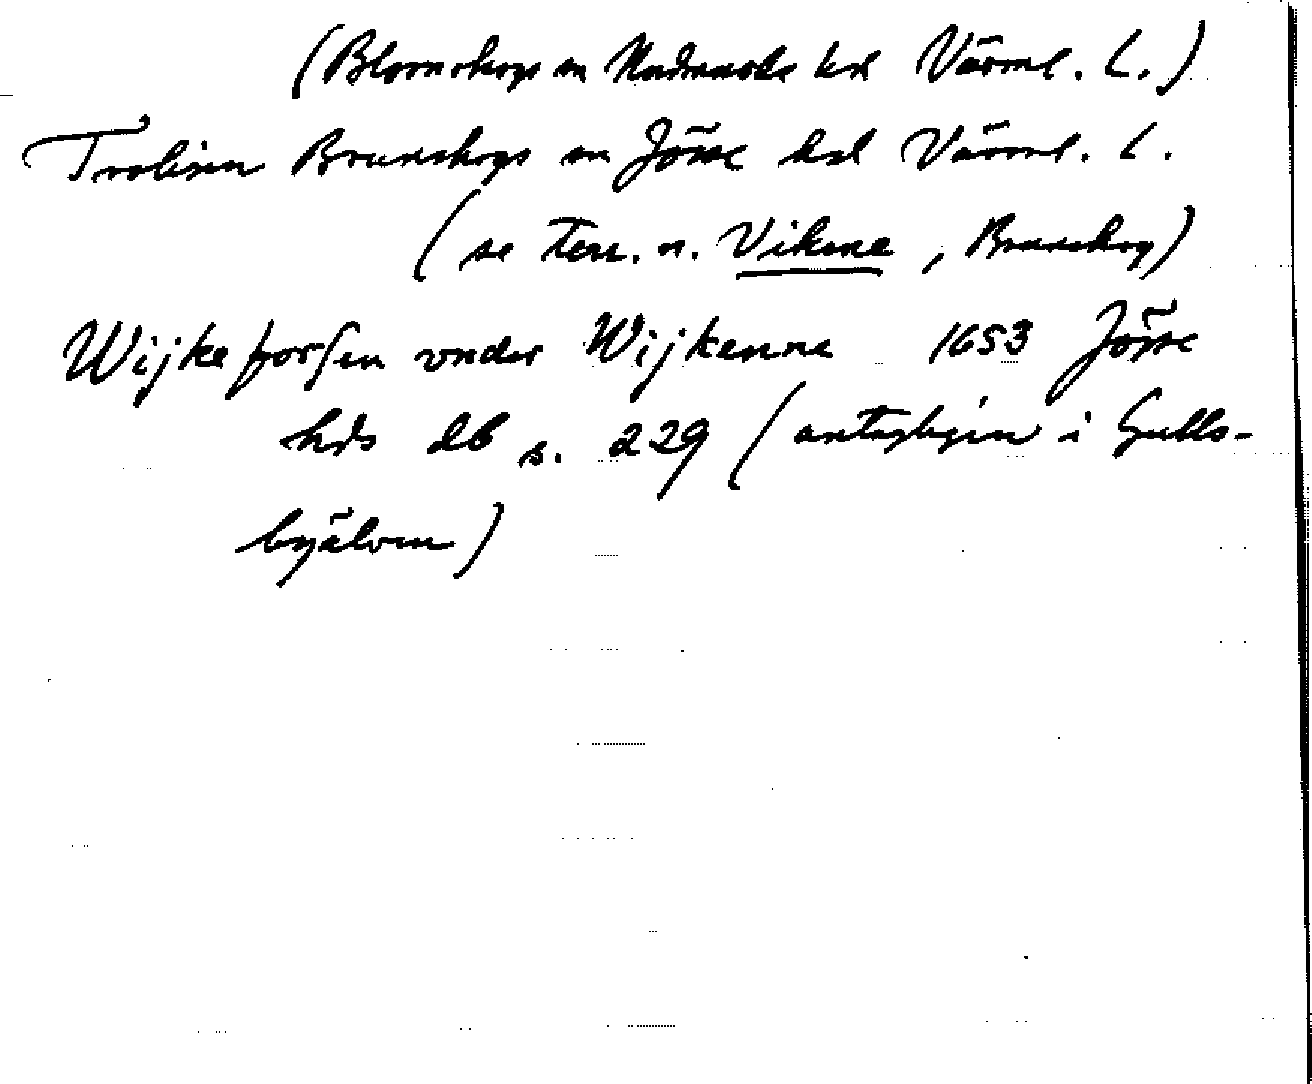 (Blomskogs sn Nordmarks hd Värml. l.)
Trolisen Brunskogs sn Jösse hd Värml. l.
(se terr. n. Vikene, Brunskog)
Wijkeforsen vnder Wijkenne 1653 Jösse
hds db s. 229 (antagligen i Gulls-
byälven)